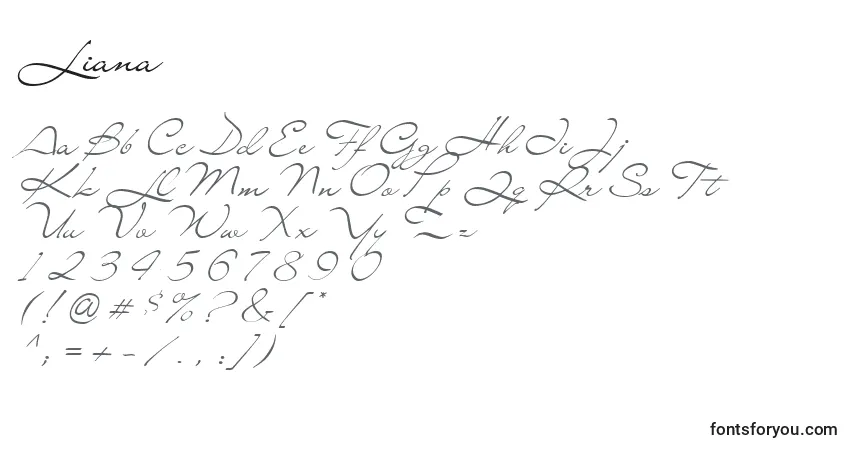 Liana
Aa Bb Cc Dd Ee Ff Gg Hh Ii Jj
Kk Ll Mm Nn Oo Pp Qq Rr Ss Tt
Uu Vv Ww Xx Yy Zz
1 2 3 4 5 6 7 8 9 0
( ! @ # $ % ? & [ *
^ ; = + - / . , : ] )
fontsforyou.com